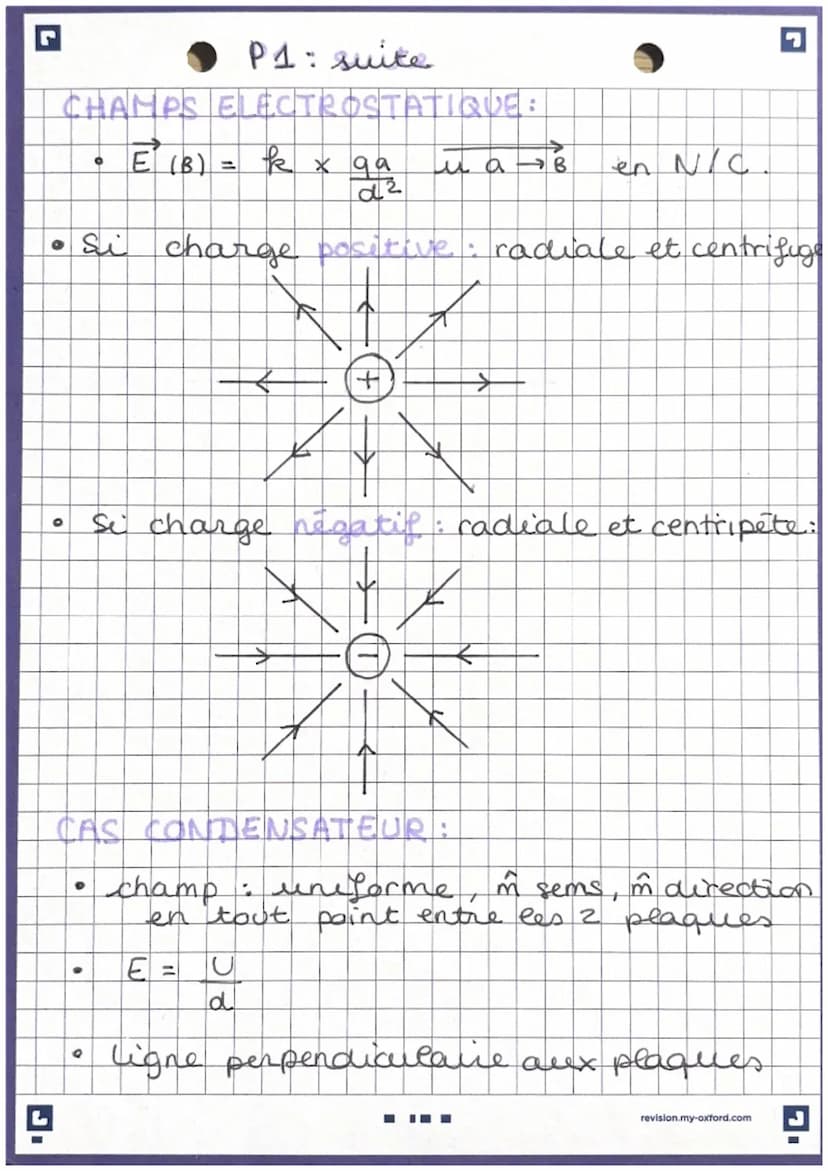 P1 : suite
CHAMPS ELECTROSTATIQUE :
• E⃗ (B) = k × qa/d² u a→B en N/C.
• Si charge positive : radiale et centrifuge
+
• Si charge négatif : radiale et centripète :
−
CAS CONDENSATEUR :
• champ : uniforme, m̂ sems, m̂ direction
en tout point entre les 2 plaques
• E = U/d
• ligne perpendiculaire aux plaques
revision.my-oxford.com